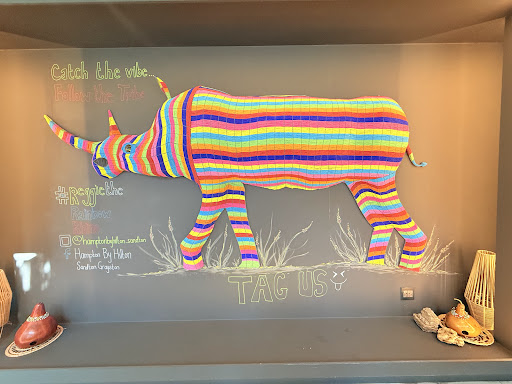 Catch the vibe...
Follow the Tribe
#Reggie the
Rainbow
Rhino
@hamptonbyhilton_sandton
Hampton By Hilton
Sandton Grayston
TAG US